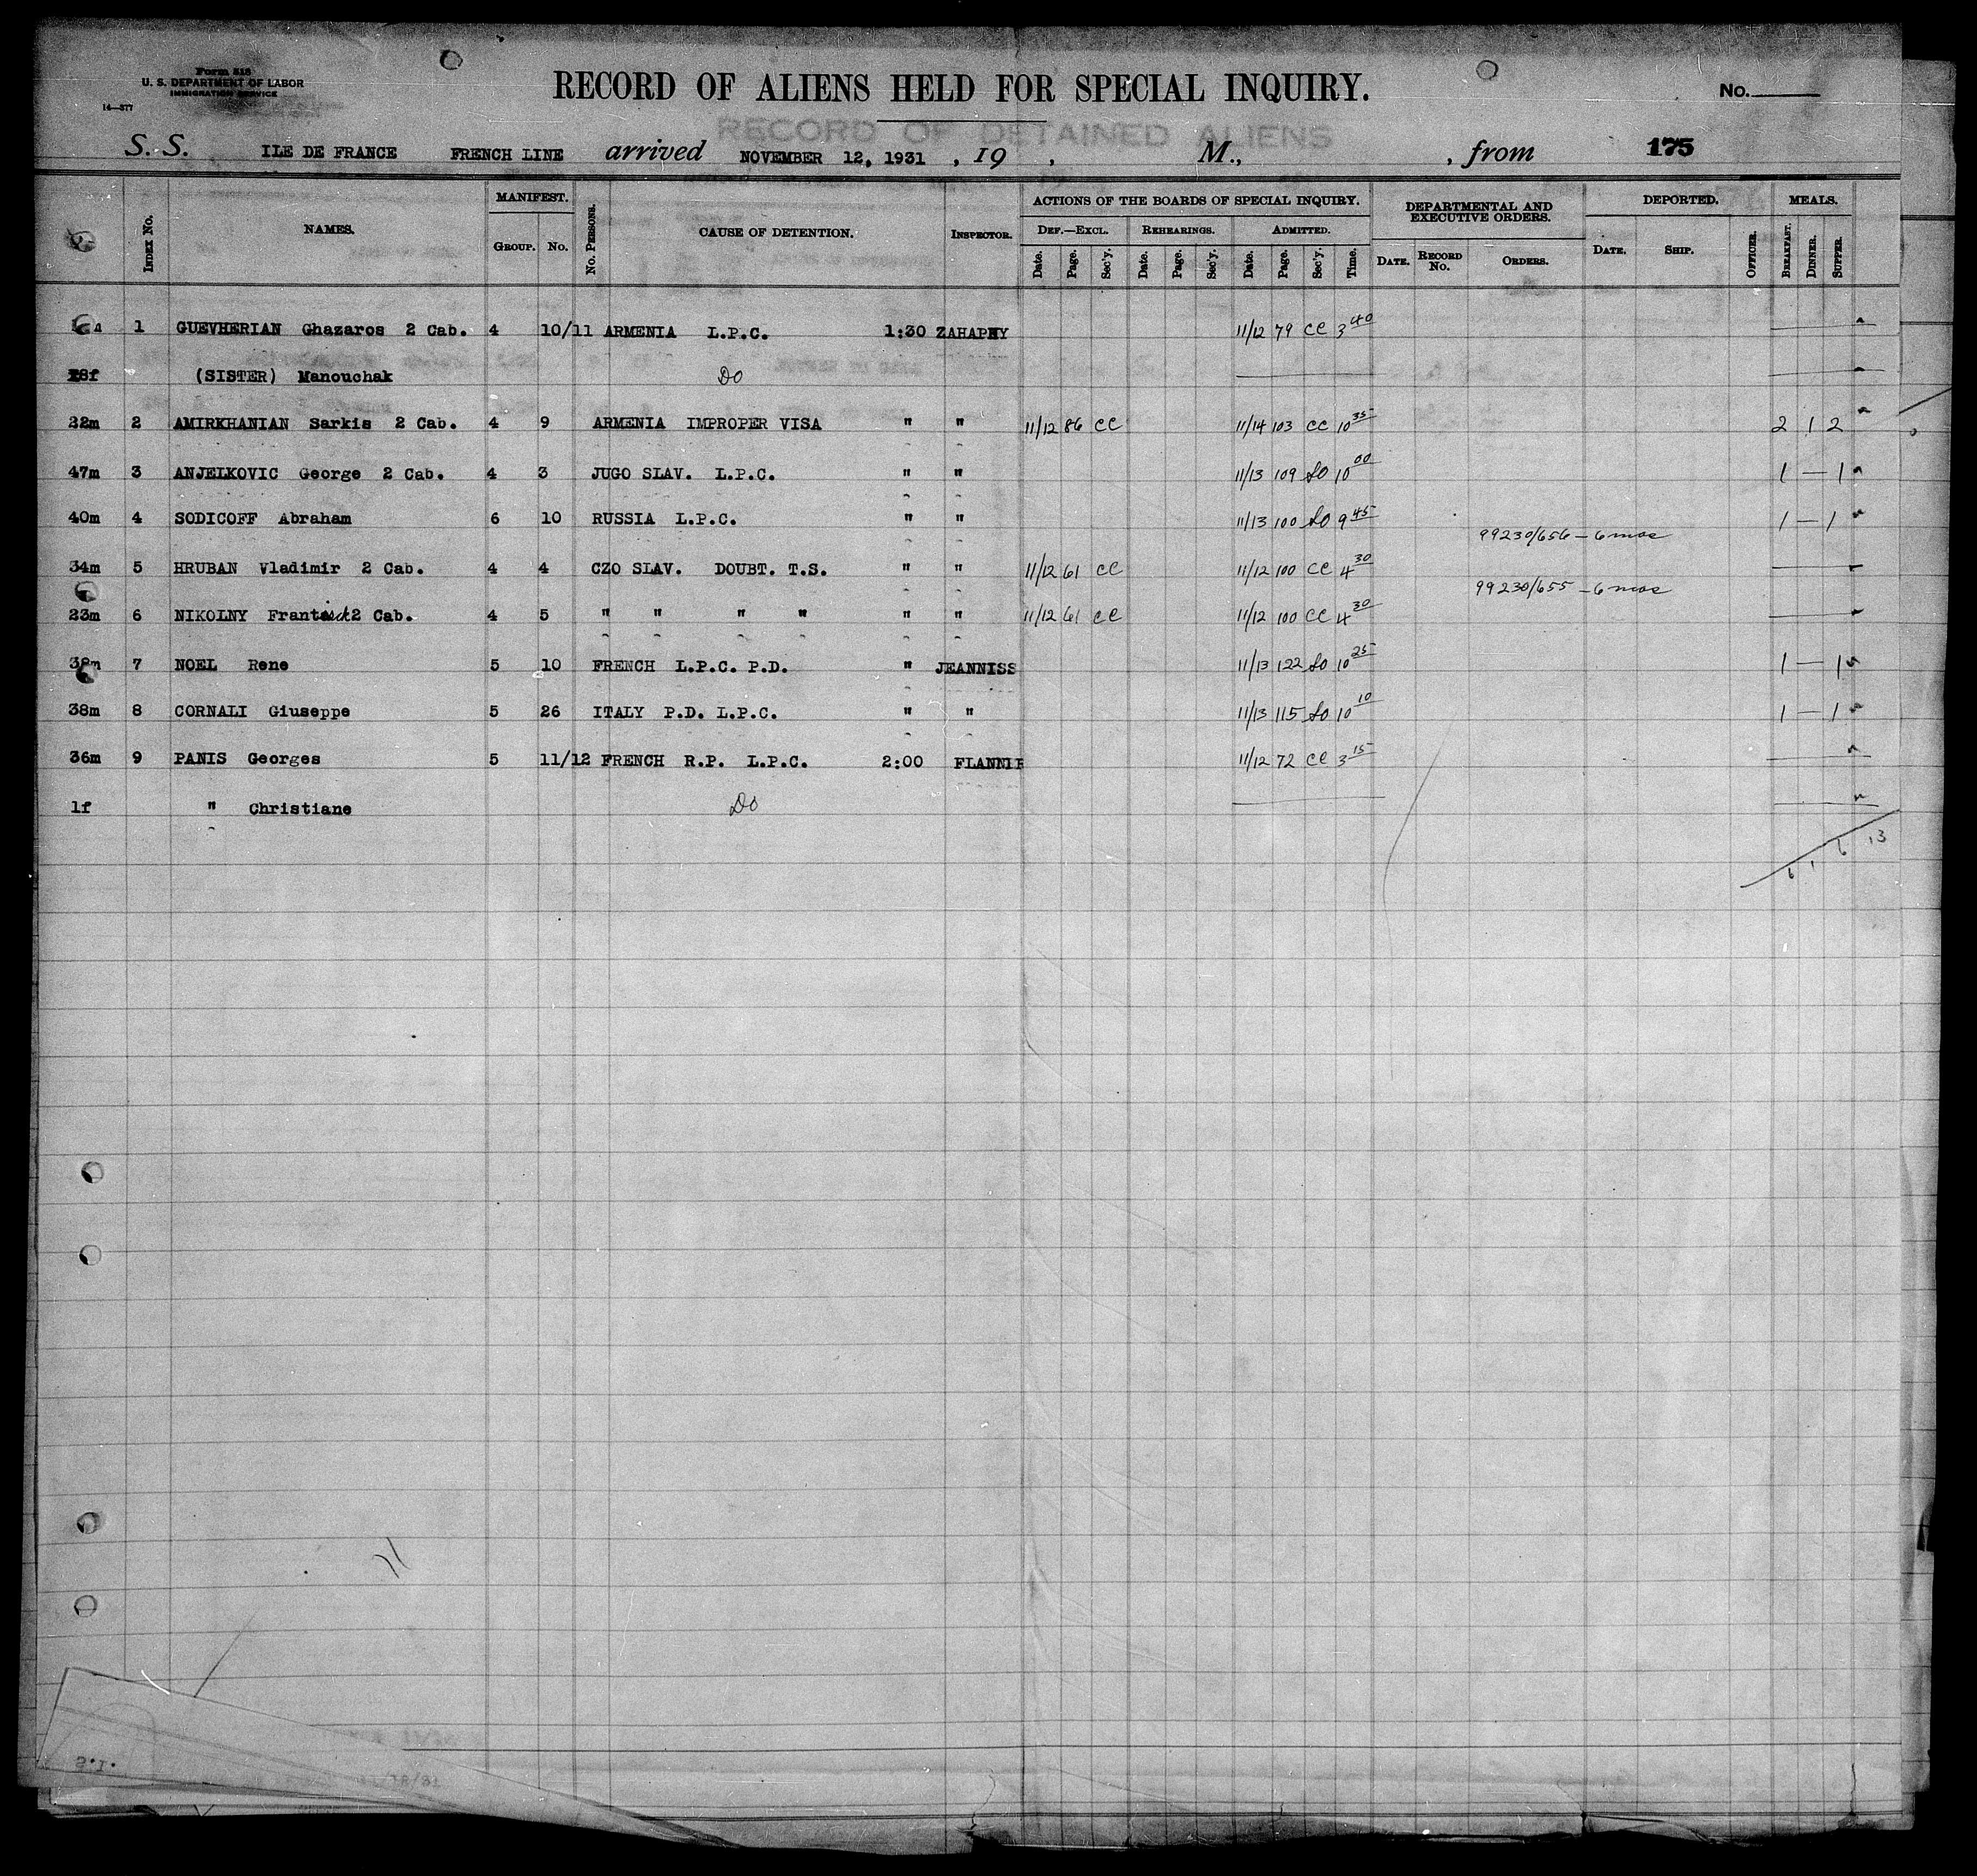 Form 518
U. S. DEPARTMENT OF LABOR
IMMIGRATION SERVICE
14—577
RECORD OF ALIENS HELD FOR SPECIAL INQUIRY.
No.
RECORD OF DETAINED ALIENS
S. S. ILE DE FRANCE FRENCH LINE arrived NOVEMBER 12, 1931 , 19 , M., , from 175
MANIFEST. ACTIONS OF THE BOARDS OF SPECIAL INQUIRY. DEPARTMENTAL AND EXECUTIVE ORDERS. DEPORTED. MEALS.
INDEX NO. NAMES. GROUP. NO. NO. PERSONS. CAUSE OF DETENTION. INSPECTOR. DEF.—EXCL. REHEARINGS. ADMITTED.
Date. Page. Sec'y. Date. Page. Sec'y. Date. Page. Sec'y. Time. DATE. RECORD NO. ORDERS. DATE. SHIP. OFFICER. BREAKFAST. DINNER. SUPPER.
1 GUEVHERIAN Ghazaros 2 Cab. 4 10/11 ARMENIA L.P.C. 1:30 ZAHAPHY 11/12 79 CC 3 40
18f (SISTER) Manouchak Do
22m 2 AMIRKHANIAN Sarkis 2 Cab. 4 9 ARMENIA IMPROPER VISA " " 11/12 86 CC 11/14 103 CC 10 35 2 1 2
47m 3 ANJELKOVIC George 2 Cab. 4 3 JUGO SLAV. L.P.C. " " 11/13 109 LO 10 00 1 — 1
40m 4 SODICOFF Abraham 6 10 RUSSIA L.P.C. " " 11/13 100 LO 9 45 1 — 1
99230/656 — 6 mos
34m 5 HRUBAN Vladimir 2 Cab. 4 4 CZO SLAV. DOUBT. T.S. " " 11/12 61 CC 11/12 100 CC 4 30
99230/655 — 6 mos
23m 6 NIKOLNY Frantisek 2 Cab. 4 5 " " " " " " 11/12 61 CC 11/12 100 CC 4 30
38m 7 NOEL Rene 5 10 FRENCH L.P.C. P.D. " JEANNISS 11/13 122 LO 10 25 1 — 1
38m 8 CORNALI Giuseppe 5 26 ITALY P.D. L.P.C. " " 11/13 115 LO 10 10 1 — 1
36m 9 PANIS Georges 5 11/12 FRENCH R.P. L.P.C. 2:00 FLANNIE 11/12 72 CC 3 15
1f " Christiane Do
6 1 6 13
S.I.